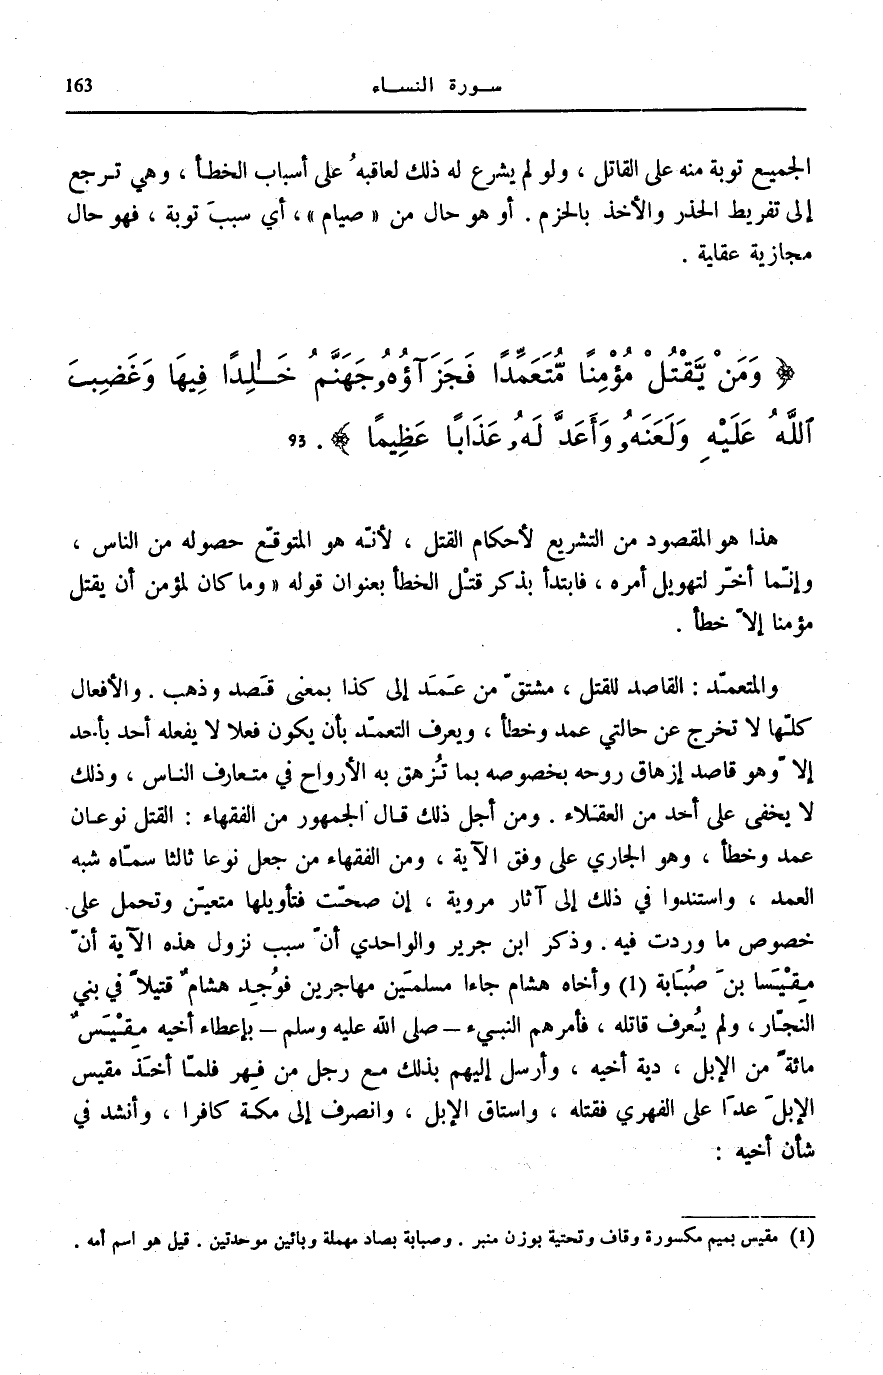 163
ســورة النســاء
الجميع توبة منه على القاتل ، ولو لم يشرع له ذلك لعاقبه ُ على أسباب الخطأ ، وهي تـرجع
إلى تفريط الحذر والأخذ بالحزم . أو هو حال من « صيام » ، أي سببَ توبة ، فهو حال
مجازية عقلية .
﴿ وَمَنْ يَّقْتُلْ مُؤْمِنًا مُّتَعَمِّدًا فَجَزَآؤُهُۥ جَهَنَّمُ خَـٰلِدًا فِيهَا وَغَضِبَ
ٱللَّهُ عَلَيْهِ وَلَعَنَهُۥ وَأَعَدَّ لَهُۥ عَذَابًا عَظِيمًا ﴾ . 93
هذا هو المقصود من التشريع لأحكام القتل ، لأنّه هو المتوقّع حصوله من الناس ،
وإنّما أخّر لتهويل أمره ، فابتدأ بذكر قتْل الخطأ بعنوان قوله « وما كان لمؤمن أن يقتل
مؤمنا إلاّ خطأ .
والمتعمّد : القاصد للقتل ، مشتقّ من عَمَد إلى كذا بمعنى قَصد وذهب . والأفعال
كلّها لا تخرج عن حالتي عمد وخطأ ، ويعرف التعمّد بأن يكون فعلا لا يفعله أحد بأحد
إلاّ وهو قاصد إزهاق روحه بخصوصه بما تُزهق به الأرواح في متعارف الناس ، وذلك
لا يخفى على أحد من العقلاء . ومن أجل ذلك قال الجمهور من الفقهاء : القتل نوعان
عمد وخطأ ، وهو الجاري على وفق الآية ، ومن الفقهاء من جعل نوعا ثالثا سمّاه شبه
العمد ، واستندوا في ذلك إلى آثار مروية ، إن صحّت فتأويلها متعيّن وتحمل على
خصوص ما وردت فيه . وذكر ابن جرير والواحدي أنّ سبب نزول هذه الآية أنّ
مِقْيَسا بنَ صُبَابة (1) وأخاه هشام جاءا مسلمَين مهاجرين فوُجِد هشامٌ قتيلاً في بني
النجّار ، ولم يُعرف قاتله ، فأمرهم النبيء – صلى الله عليه وسلم – بإعطاء أخيه مِقْيَسٌ
مائةً من الإبل ، دية أخيه ، وأرسل إليهم بذلك مع رجل من فِهر فلمّا أخَذ مقيس
الإبلَ عدَا على الفهري فقتله ، واستاق الإبل ، وانصرف إلى مكة كافرا ، وأنشد في
شأن أخيه :
(1) مقيس بميم مكسورة وقاف وتحتية بوزن منبر . وصبابة بصاد مهملة وبائين موحدتين . قيل هو اسم أمه .